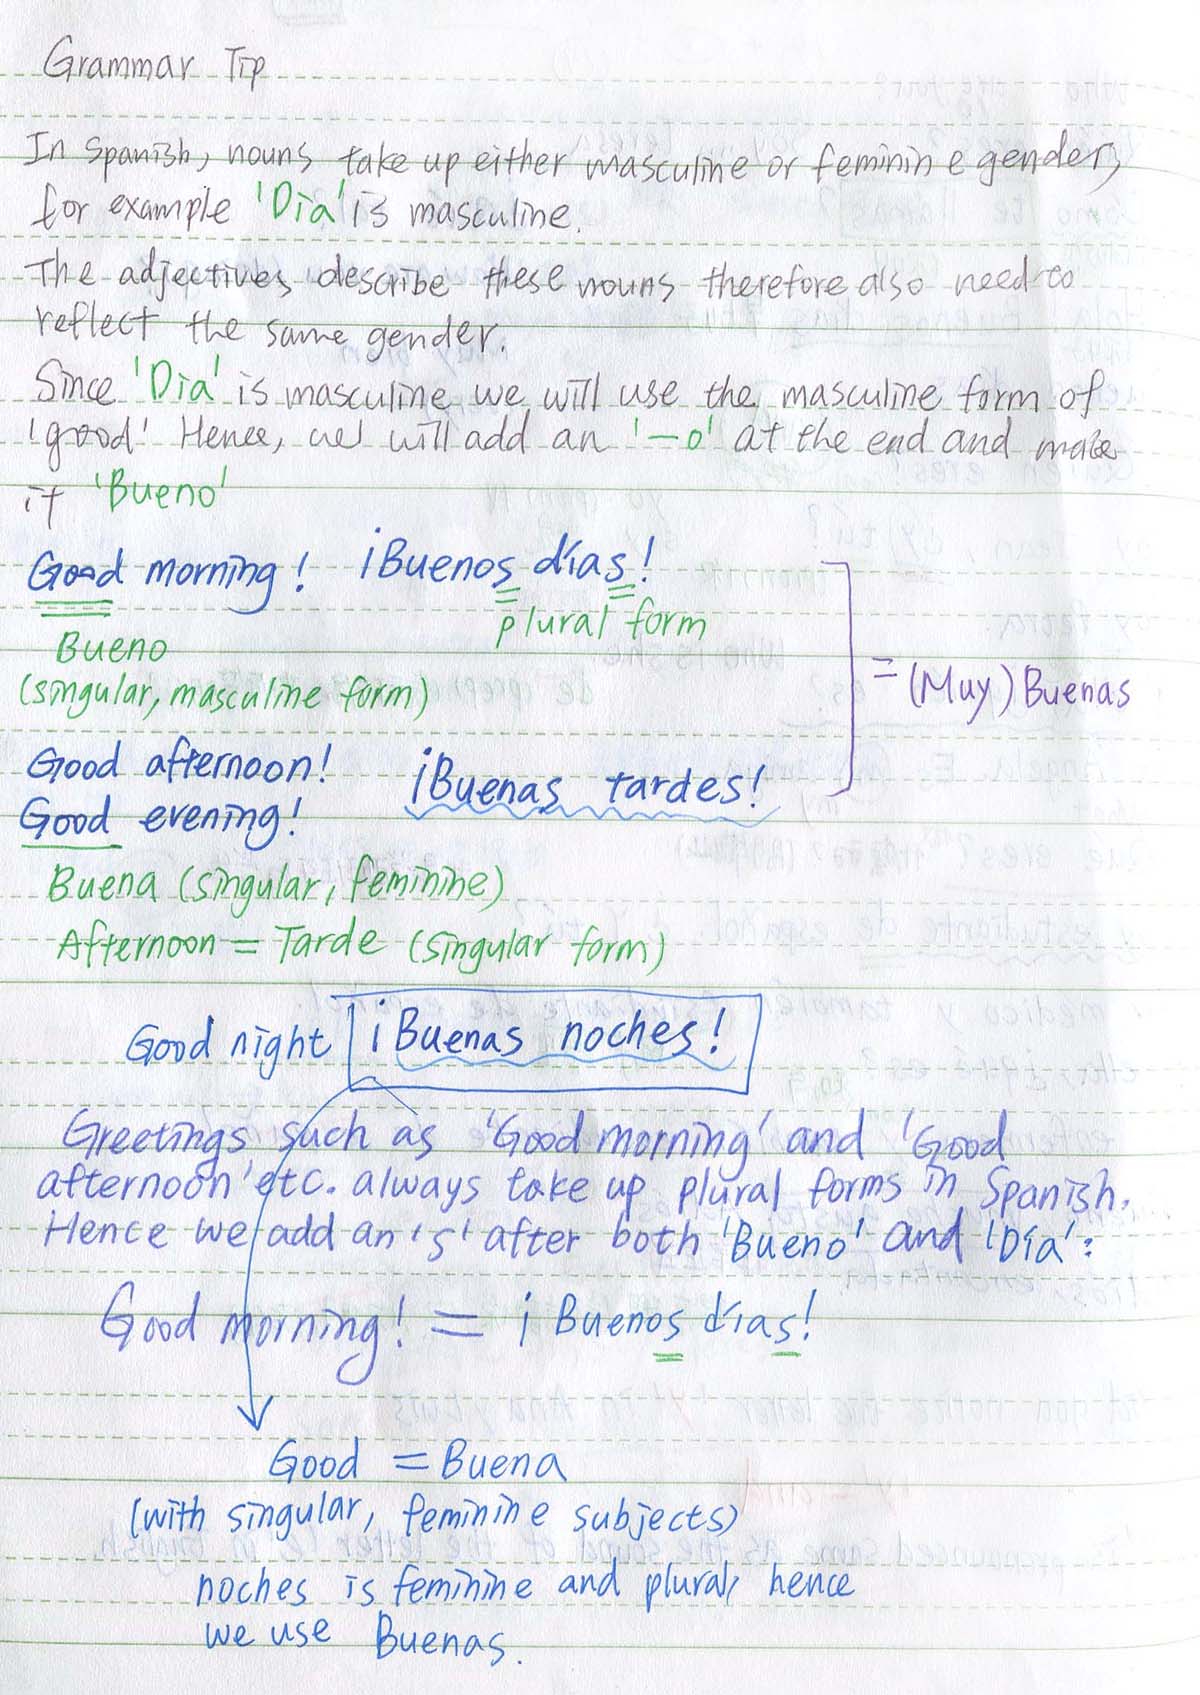 Grammar Tip
In Spanish, nouns take up either masculine or feminine gender,
for example 'Día' is masculine.
The adjectives describe these nouns therefore also need to
reflect the same gender.
Since 'Día' is masculine we will use the masculine form of
'good'. Hence, we will add an '-o' at the end and make
it 'Bueno'
Good morning! ¡Buenos días!
plural form
Bueno
(singular, masculine form)
= (Muy) Buenas
Good afternoon!
¡Buenas tardes!
Good evening!
Buena (singular, feminine)
Afternoon = Tarde (singular form)
Good night ¡Buenas noches!
Greetings such as 'Good morning' and 'Good
afternoon' etc. always take up plural forms in Spanish.
Hence we add an 's' after both 'Bueno' and 'Día':
Good morning! = ¡Buenos días!
Good = Buena
(with singular, feminine subjects)
noches is feminine and plural, hence
we use Buenas.